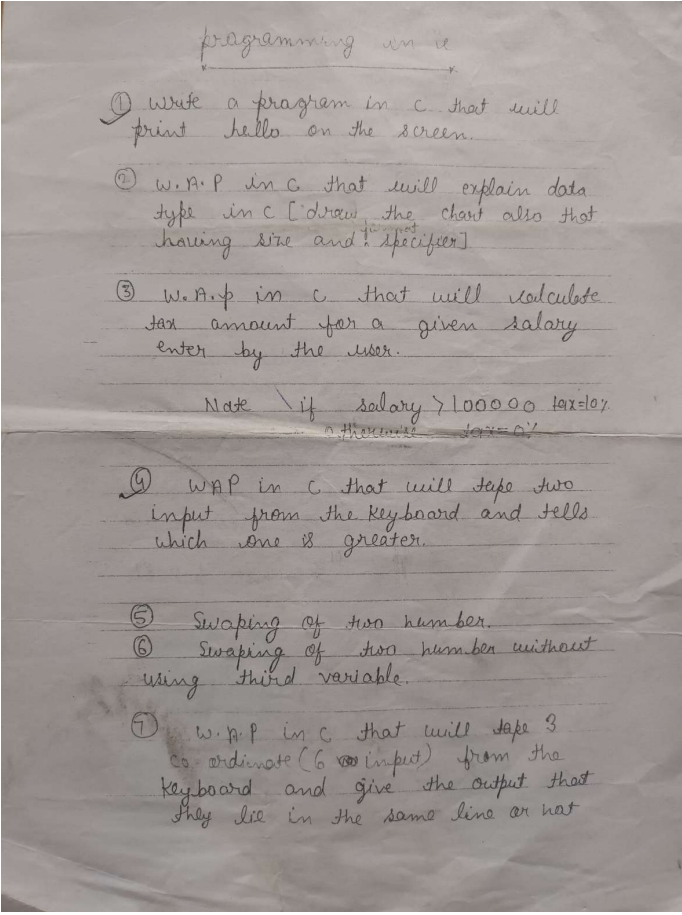 programming in c
① Write a program in c that will
print hello on the screen.
② W.A.P in c that will explain data
type in c [draw the chart also that
having size and format specifier]
③ W.A.p in c that will calculate
tax amount for a given salary
enter by the user.
Note \ if salary > 100000 tax=10%
otherwise tax=0%
④ WAP in c that will tape two
input from the keyboard and tells
which one is greater.
⑤ Swaping of two number.
⑥ Swaping of two number without
using third variable.
⑦ W.A.P in c that will tape 3
co-ordinate (6 input) from the
keyboard and give the output that
they lie in the same line or not